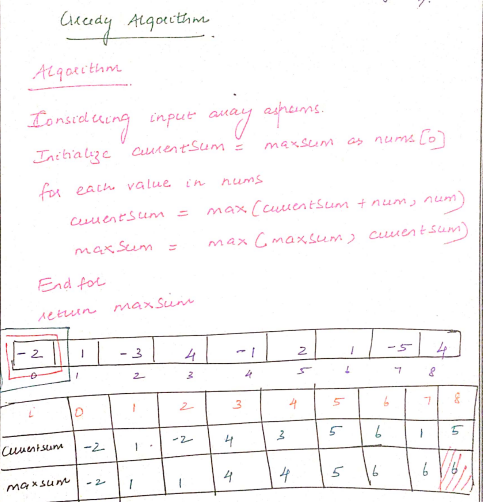 Greedy Algorithm
Algorithm
Considering input array as nums.
Initialize currentSum = maxsum as nums[0]
for each value in nums
currentsum = max(currentsum + num, num)
maxsum = max(maxsum, currentsum)
End for
return maxsum
-2 1 -3 4 -1 2 1 -5 4
0 1 2 3 4 5 6 7 8
i 0 1 2 3 4 5 6 7 8
currentsum -2 1 -2 4 3 5 6 1 5
maxsum -2 1 1 4 4 5 6 6 6